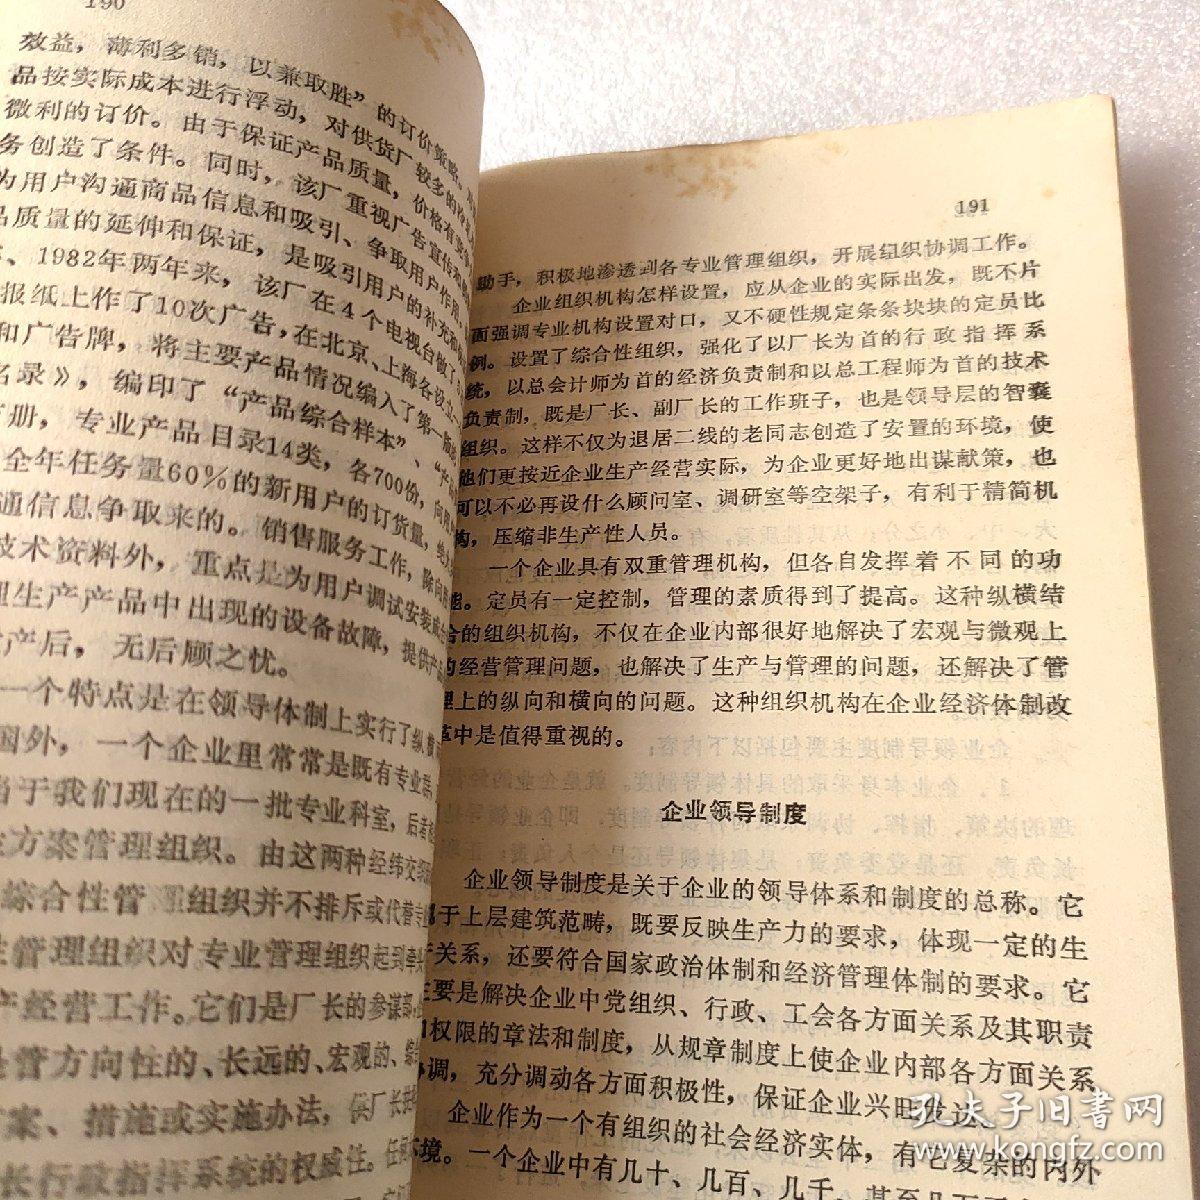 190
效益，薄利多销，以兼取胜”的订价策略。
品按实际成本进行浮动，对供货厂较多的
微利的订价。由于保证产品质量，价格有
务创造了条件。同时，该厂重视广告宣传
为用户沟通商品信息和吸引、争取用户作用
品质量的延伸和保证，是吸引用户的补充和
、1982年两年来，该厂在4个电视台做了
报纸上作了10次广告，在北京、上海各设立
和广告牌，将主要产品情况编入了第一
名录》，编印了“产品综合样本”、
册，专业产品目录14类，各700份，向
全年任务量60％的新用户的订货量，
通信息争取来的。销售服务工作，除向
技术资料外，重点是为用户调试安装
理生产产品中出现的设备故障，提供
产后，无后顾之忧。
一个特点是在领导体制上实行了纵横
国外，一个企业里常常是既有专业
当于我们现在的一批专业科室，后者
方案管理组织。由这两种经纬交
综合性管理组织并不排斥或代替
性管理组织对专业管理组织起到牵头
产经营工作。它们是厂长的参谋部
是管方向性的、长远的、宏观的、综
方案、措施或实施办法，供厂长
长行政指挥系统的权威性。任何
191
助手，积极地渗透到各专业管理组织，开展组织协调工作。
企业组织机构怎样设置，应从企业的实际出发，既不片
面强调专业机构设置对口，又不硬性规定条条块块的定员比
例。设置了综合性组织，强化了以厂长为首的行政指挥系
统，以总会计师为首的经济负责制和以总工程师为首的技术
负责制，既是厂长、副厂长的工作班子，也是领导层的智囊
组织。这样不仅为退居二线的老同志创造了安置的环境，使
他们更接近企业生产经营实际，为企业更好地出谋献策，也
可以不必再设什么顾问室、调研室等空架子，有利于精简机
构，压缩非生产性人员。
一个企业具有双重管理机构，但各自发挥着不同的功
能。定员有一定控制，管理的素质得到了提高。这种纵横结
合的组织机构，不仅在企业内部很好地解决了宏观与微观上
的经营管理问题，也解决了生产与管理的问题，还解决了管
理上的纵向和横向的问题。这种组织机构在企业经济体制改
革中是值得重视的。
企业领导制度
企业领导制度是关于企业的领导体系和制度的总称。它
属于上层建筑范畴，既要反映生产力的要求，体现一定的生
产关系，还要符合国家政治体制和经济管理体制的要求。它
主要是解决企业中党组织、行政、工会各方面关系及其职责
和权限的章法和制度，从规章制度上使企业内部各方面关系
协调，充分调动各方面积极性，保证企业兴旺发达。
企业作为一个有组织的社会经济实体，有它复杂的内外
环境。一个企业中有几十、几百、几千、甚至几万
孔夫子旧书网
www.kongfz.com